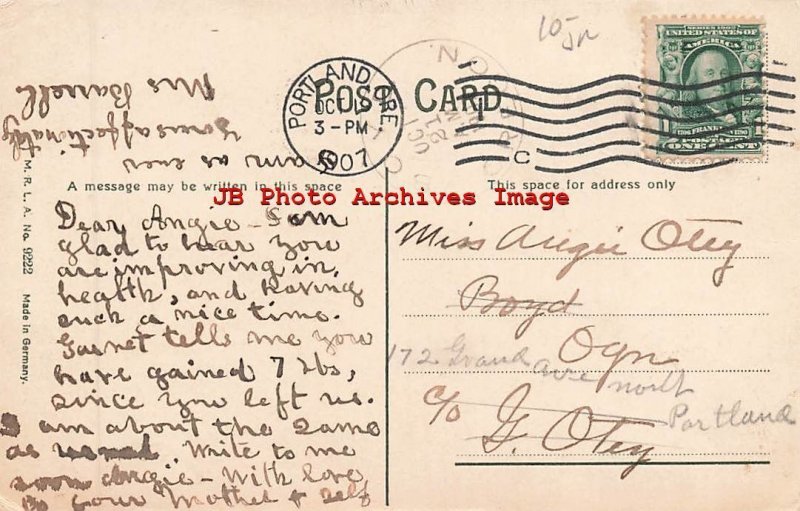 10-
POST CARD
PORTLAND, ORE.
3-PM
1907
C
SERIES 1902
UNITED STATES OF AMERICA
1706 FRANKLIN 1790
POSTAGE
ONE CENT
A message may be written in this space
This space for address only
JB Photo Archives Image
M. R. L. A. No. 9222 Made in Germany.
Dear Angie - I am
glad to hear you
are improving in
health, and having
such a nice time.
Garnet tells me you
have gained 7 lbs,
since you left us.
I am about the same
as usual. Write to me
soon Angie - With love
to your Mother & self
I am as ever
Yours affectionately
Mrs Barrell
Miss Angie Otey
Boyd
Ogn
172 Grand ave north
Portland
c/o G. Otey